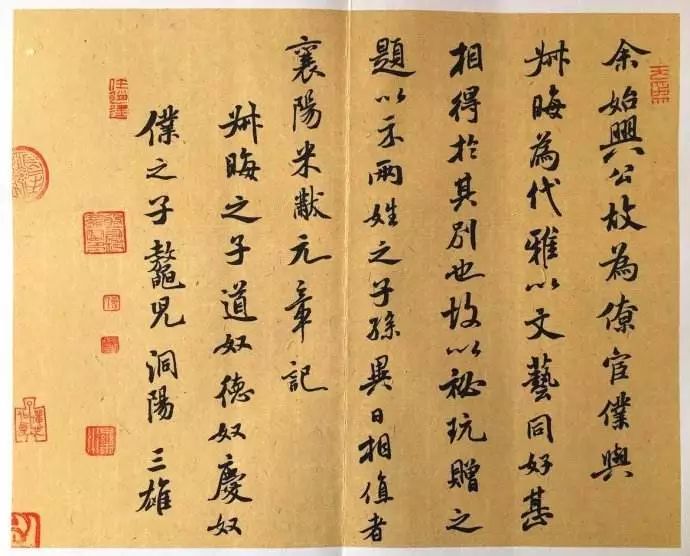 余始興公故為僚官僕與
叔晦為代雅以文藝同好甚
相得於其別也故以秘玩贈之
題以示兩姓之子孫異日相值者
襄陽米黻元章記
叔晦之子道奴德奴慶奴
僕之子鼇兒洞陽三雄